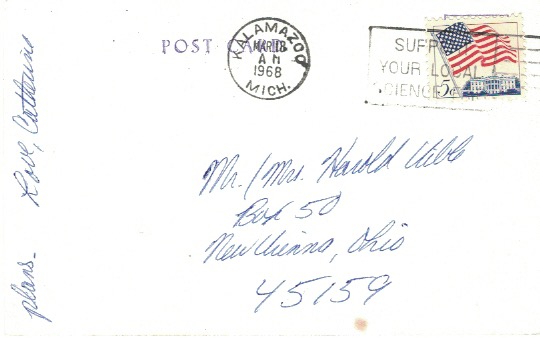 POST CARD
KALAMAZOO
MAR 18
AM
1968
MICH.
SUPP
YOUR LOCAL
SCIENCE FAIR
5c
Mr. / Mrs. Harold Uible
Box 50
New Vienna, Ohio
45159
plans. Love, Catherine